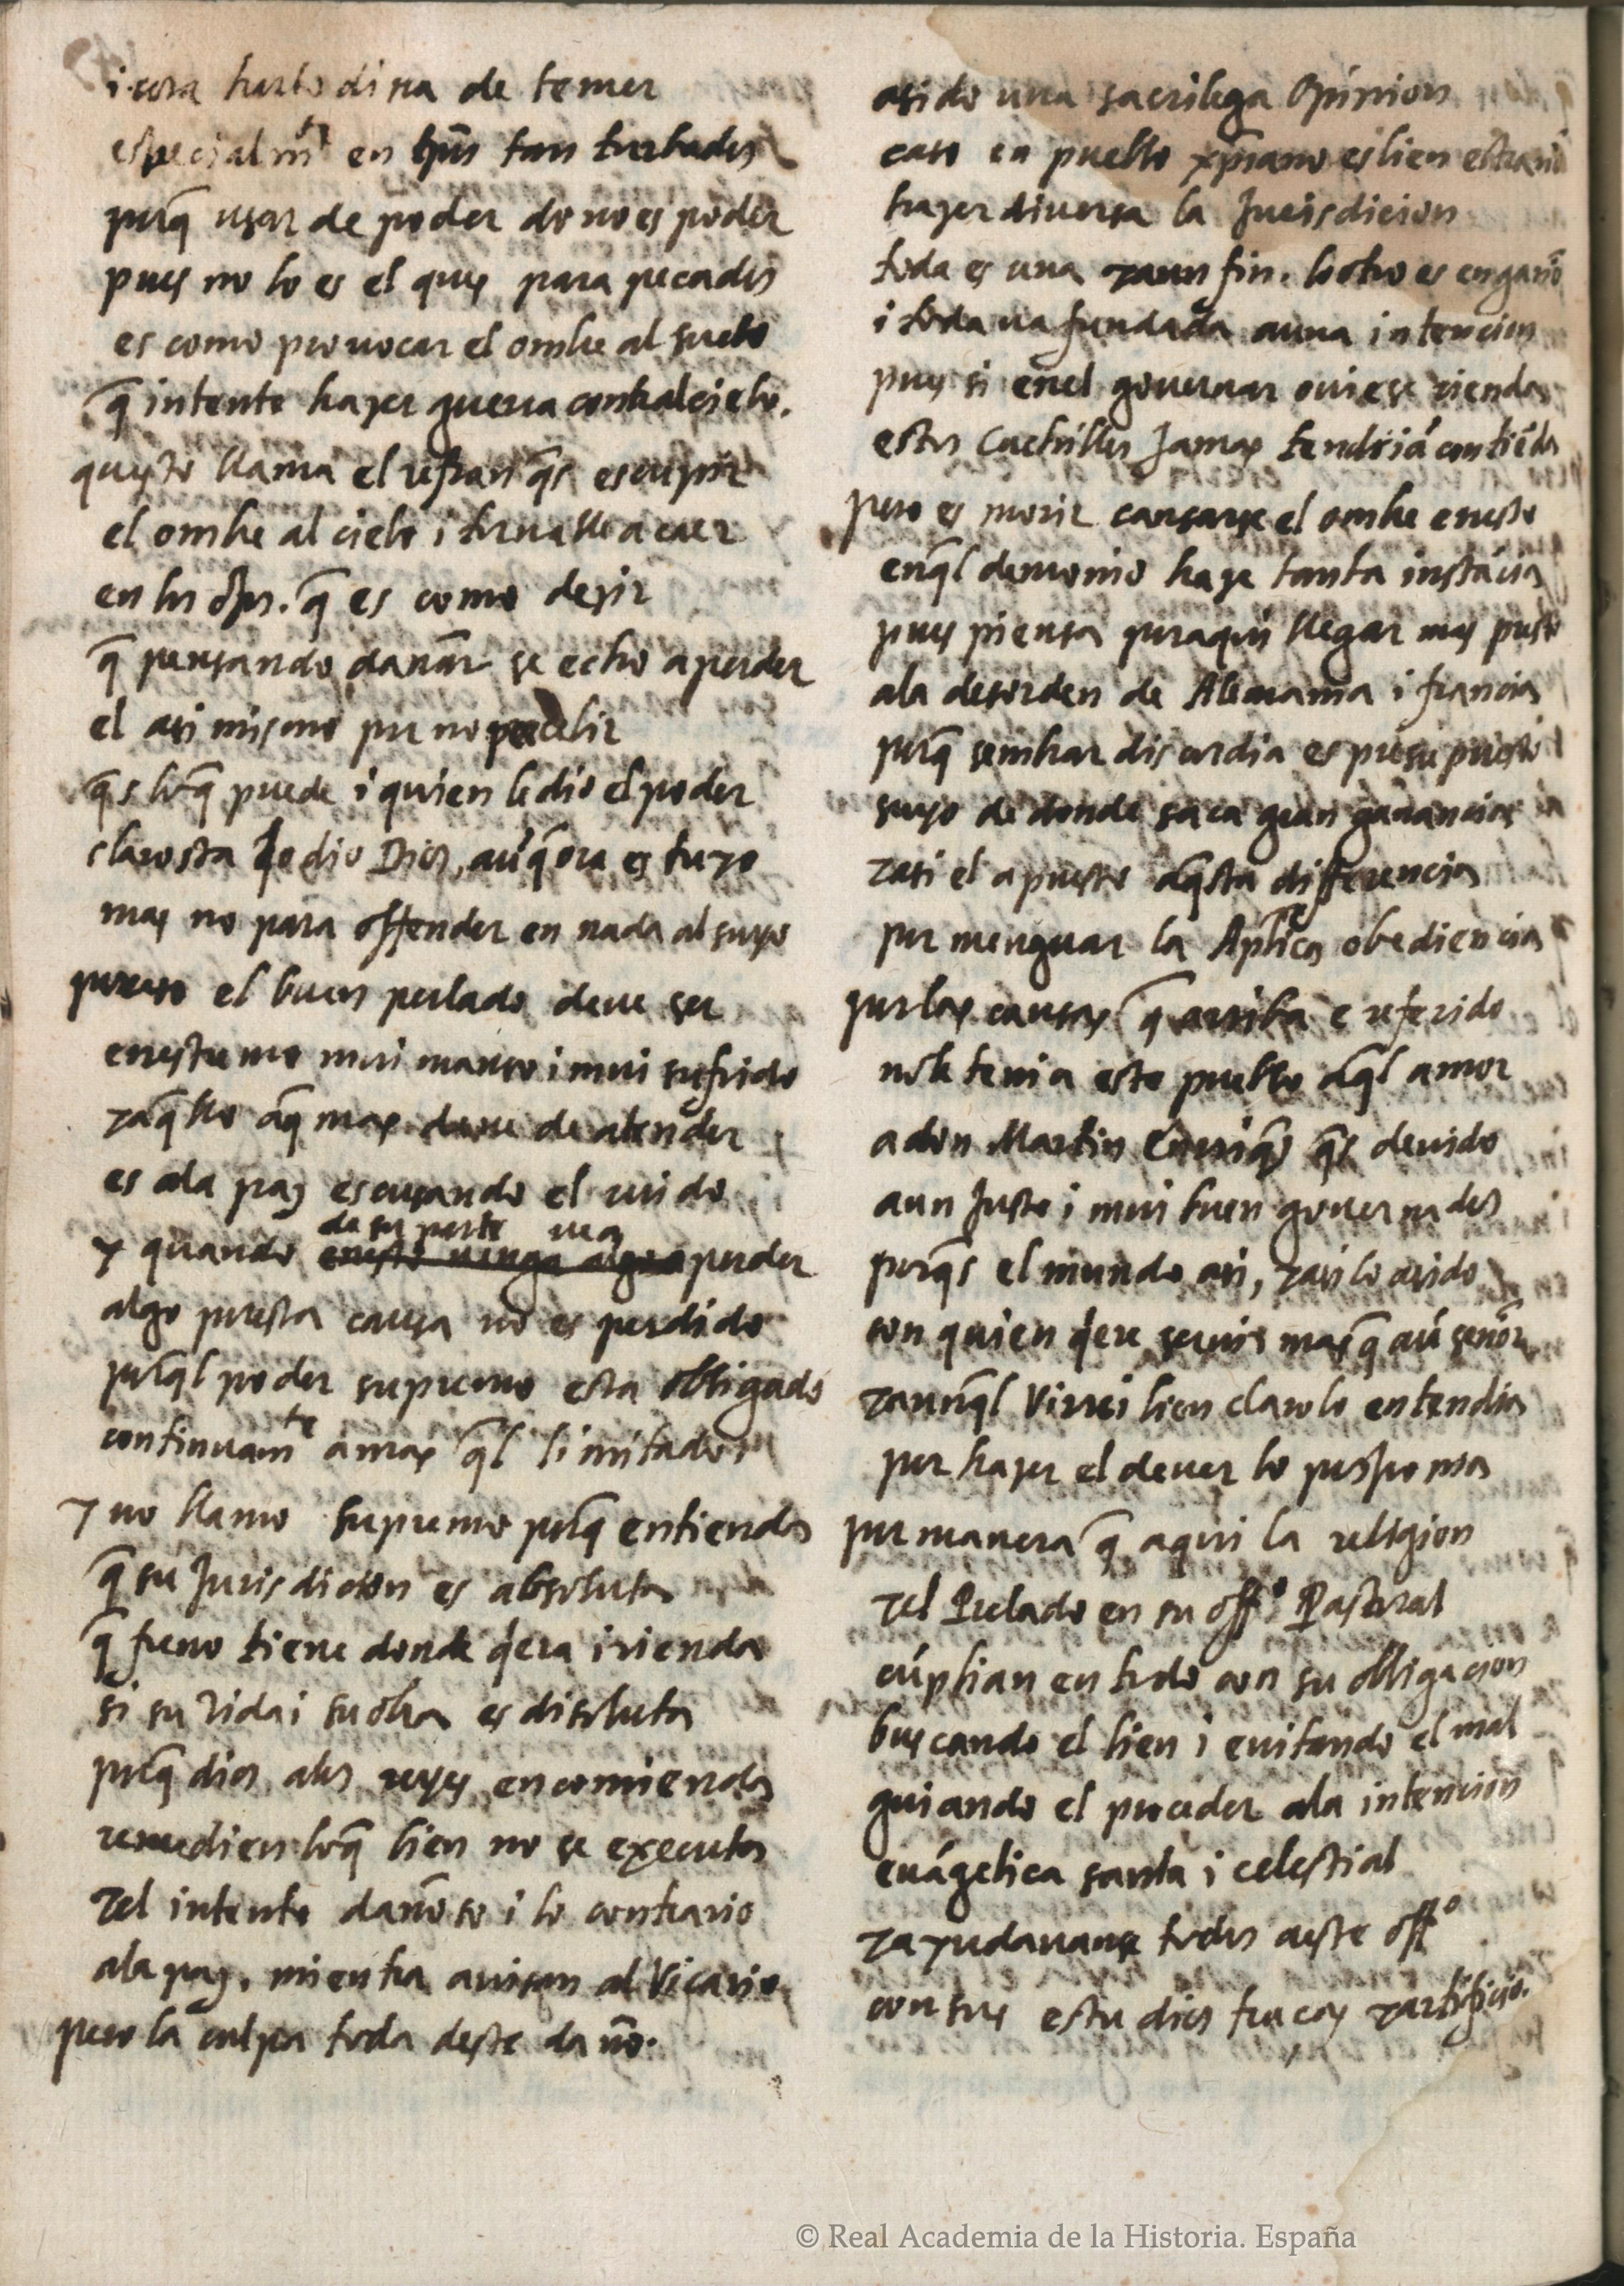 i cosa harto dina de temer
especialmte en tpos tan turbados
porq̃ usar de poder do no es poder
pues no lo es el ques para pecados
es como provocar el ombre al suelo
q̃ intente hazer guerra contralcielo.
questo llama el refran q̃s escupir
el ombre al cielo i tornalle a caer
en los ojos. q̃ es como dezir
q̃ pensando dañar se echo a perder
el asi mismo por no
q̃s loq̃ puede i quien le dio el poder
claro sta q̃ le dio Dios, aũq̃ ora es tuyo
mas no para offender en nada al suyo
poreso el buen perlado deve ser
eneste mui manso i mui sufrido
y aq̃llo aq̃ mas deve de atender
es ala paz escusando el ruido
de su parte vea
y quando enesto venga algo a perder
algo poresta causa no es perdido
porq̃l poder supremo esta obligado
continuamte a mas q̃l limitado
y no llamo supremo porq̃ entienda
q̃ su Jurisdicion es absoluta
q̃ freno tiene donde q̃era i rienda
si su vida i su obra es disoluta
porq̃ dios alos reyes encomienda
remedien loq̃ bien no se executa
y el intento dañoso i lo contrario
ala paz. mientra avisan al Vicario
pero la culpa toda deste daño.
asido una sacrilega opinion
caso en pueblo xp̃iano es bien estraño
hazer diversa la Jurisdicion
toda es una y aun fin. lo otro es engaño
i toda va fundada auna intencion
pues si enel governar oviese rienda
estos cuchillos Jamas tendriã contiẽda
pero es morir cansarse el ombre enesto
enq̃l demonio haze tanta instãcia
pues piensa poraqui llegar mas presto
ala desorden de Alemania i francia
porq̃ sembrar discordia es presupuesto
suyo de donde saca gran ganancia
y asi el a puesto aq̃sta differencia
por menguar la Aplica obediencia
por las causas q̃ arriba e referido
nõ le tenia este pueblo aq̃l amor
a don Martin Enriq̃s q̃s devido
aun Justo i mui buen governador
porq̃s el mundo asi, y asi lo asido
con quien q̃ere servir mas q̃ aũ señor
y aunq̃l Virrei bien claro lo entendia
por hazer el dever lo posponia
por manera q̃ aqui la religion
y el Prelado en su offº Pastoral
cũplian en todo con su obligacion
buscando el bien i evitando el mal
guiando el proceder ala intencion
evãgelica santa i celestial
y ayudavanse todos aeste offº
con sus estudios traças y artificio.
© Real Academia de la Historia. España